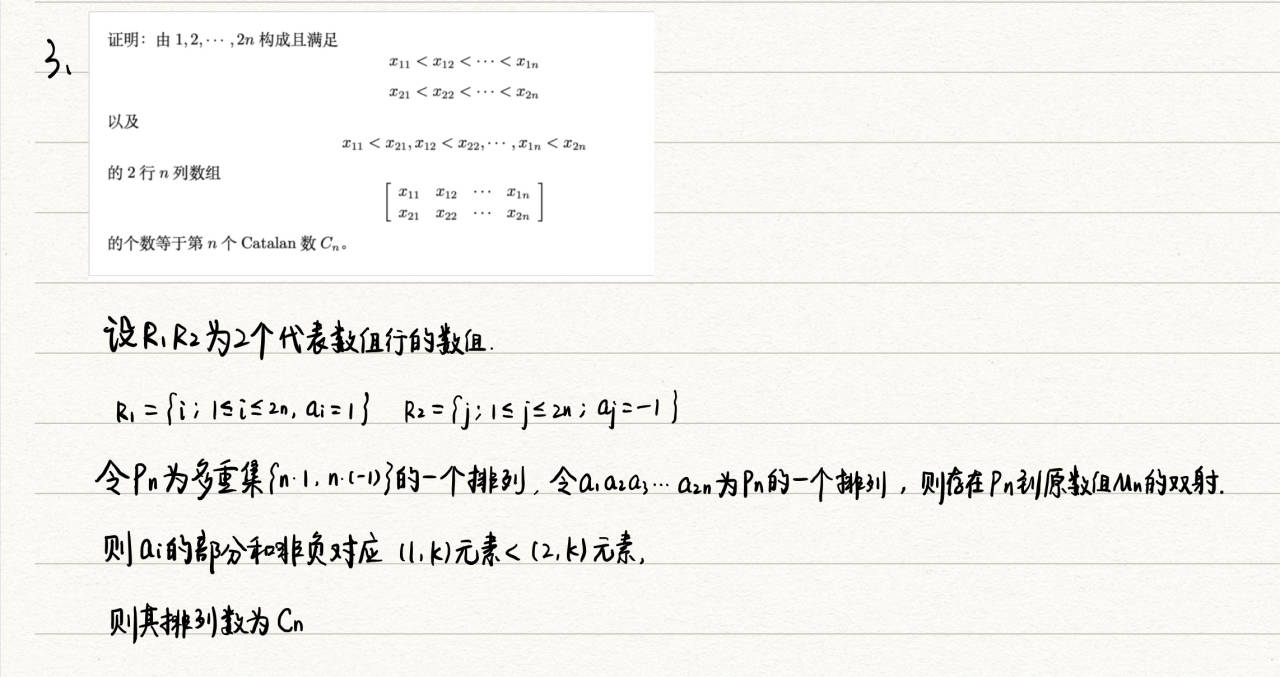 3、
证明：由 1, 2, ⋯ , 2n 构成且满足
x₁₁ < x₁₂ < ⋯ < x₁ₙ
x₂₁ < x₂₂ < ⋯ < x₂ₙ
以及
x₁₁ < x₂₁, x₁₂ < x₂₂, ⋯ , x₁ₙ < x₂ₙ
的 2 行 n 列数组
[ x₁₁ x₁₂ ⋯ x₁ₙ
x₂₁ x₂₂ ⋯ x₂ₙ ]
的个数等于第 n 个 Catalan 数 Cₙ。
设R₁R₂为2个代表数组行的数组.
R₁={i; 1≤i≤2n, aᵢ=1} R₂={j; 1≤j≤2n; aⱼ=-1}
令Pn为多重集{n·1, n·(-1)}的一个排列, 令a₁a₂a₃⋯a₂ₙ为Pn的一个排列, 则存在Pn到原数组Mn的双射.
则aᵢ的部分和非负对应 (1,k)元素<(2,k)元素,
则其排列数为Cn